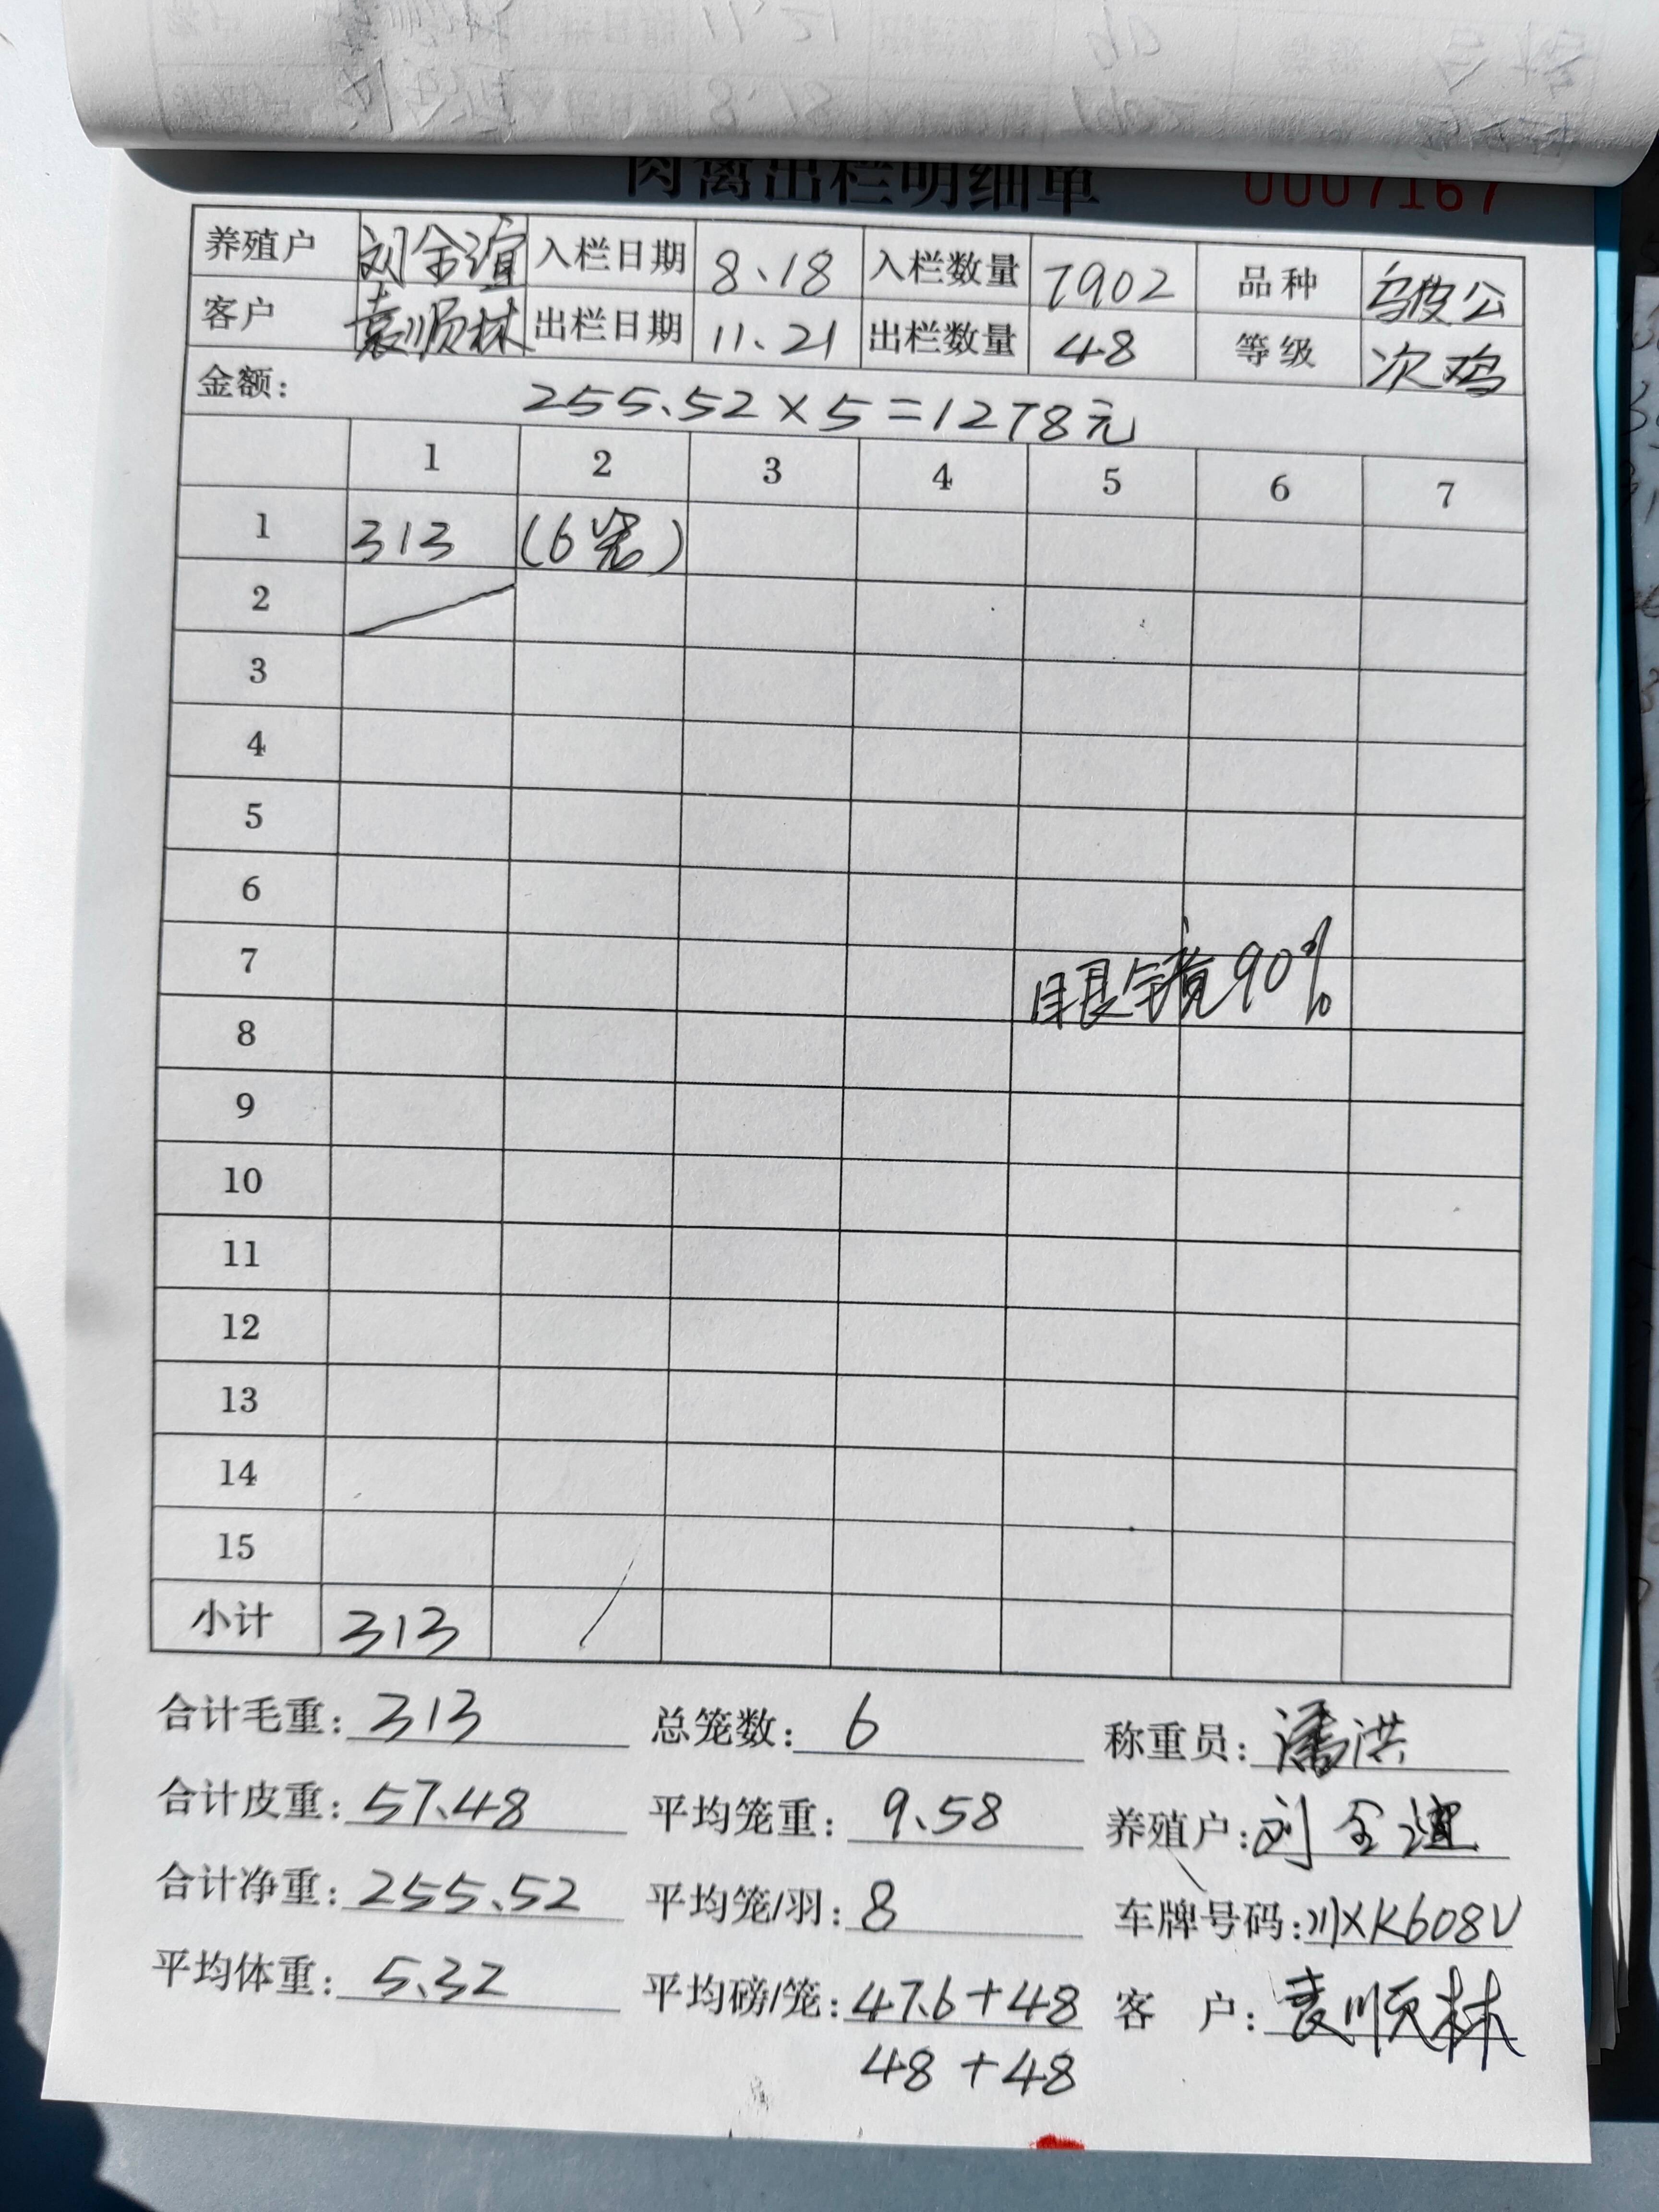 肉禽出栏明细单 0007167
养殖户 刘全谊 入栏日期 8、18 入栏数量 7902 品种 乌皮公
客户 袁顺林 出栏日期 11、21 出栏数量 48 等级 次鸡
金额: 255.52×5=1278元
1 2 3 4 5 6 7
1 313 (6笼)
2
3
4
5
6
7 眼镜90%
8
9
10
11
12
13
14
15
小计 313
合计毛重: 313 总笼数: 6 称重员: 潘洪
合计皮重: 57.48 平均笼重: 9.58 养殖户: 刘全谊
合计净重: 255.52 平均笼/羽: 8 车牌号码: 川XK608V
平均体重: 5.32 平均磅/笼: 47.6+48 客 户: 袁顺林
48+48